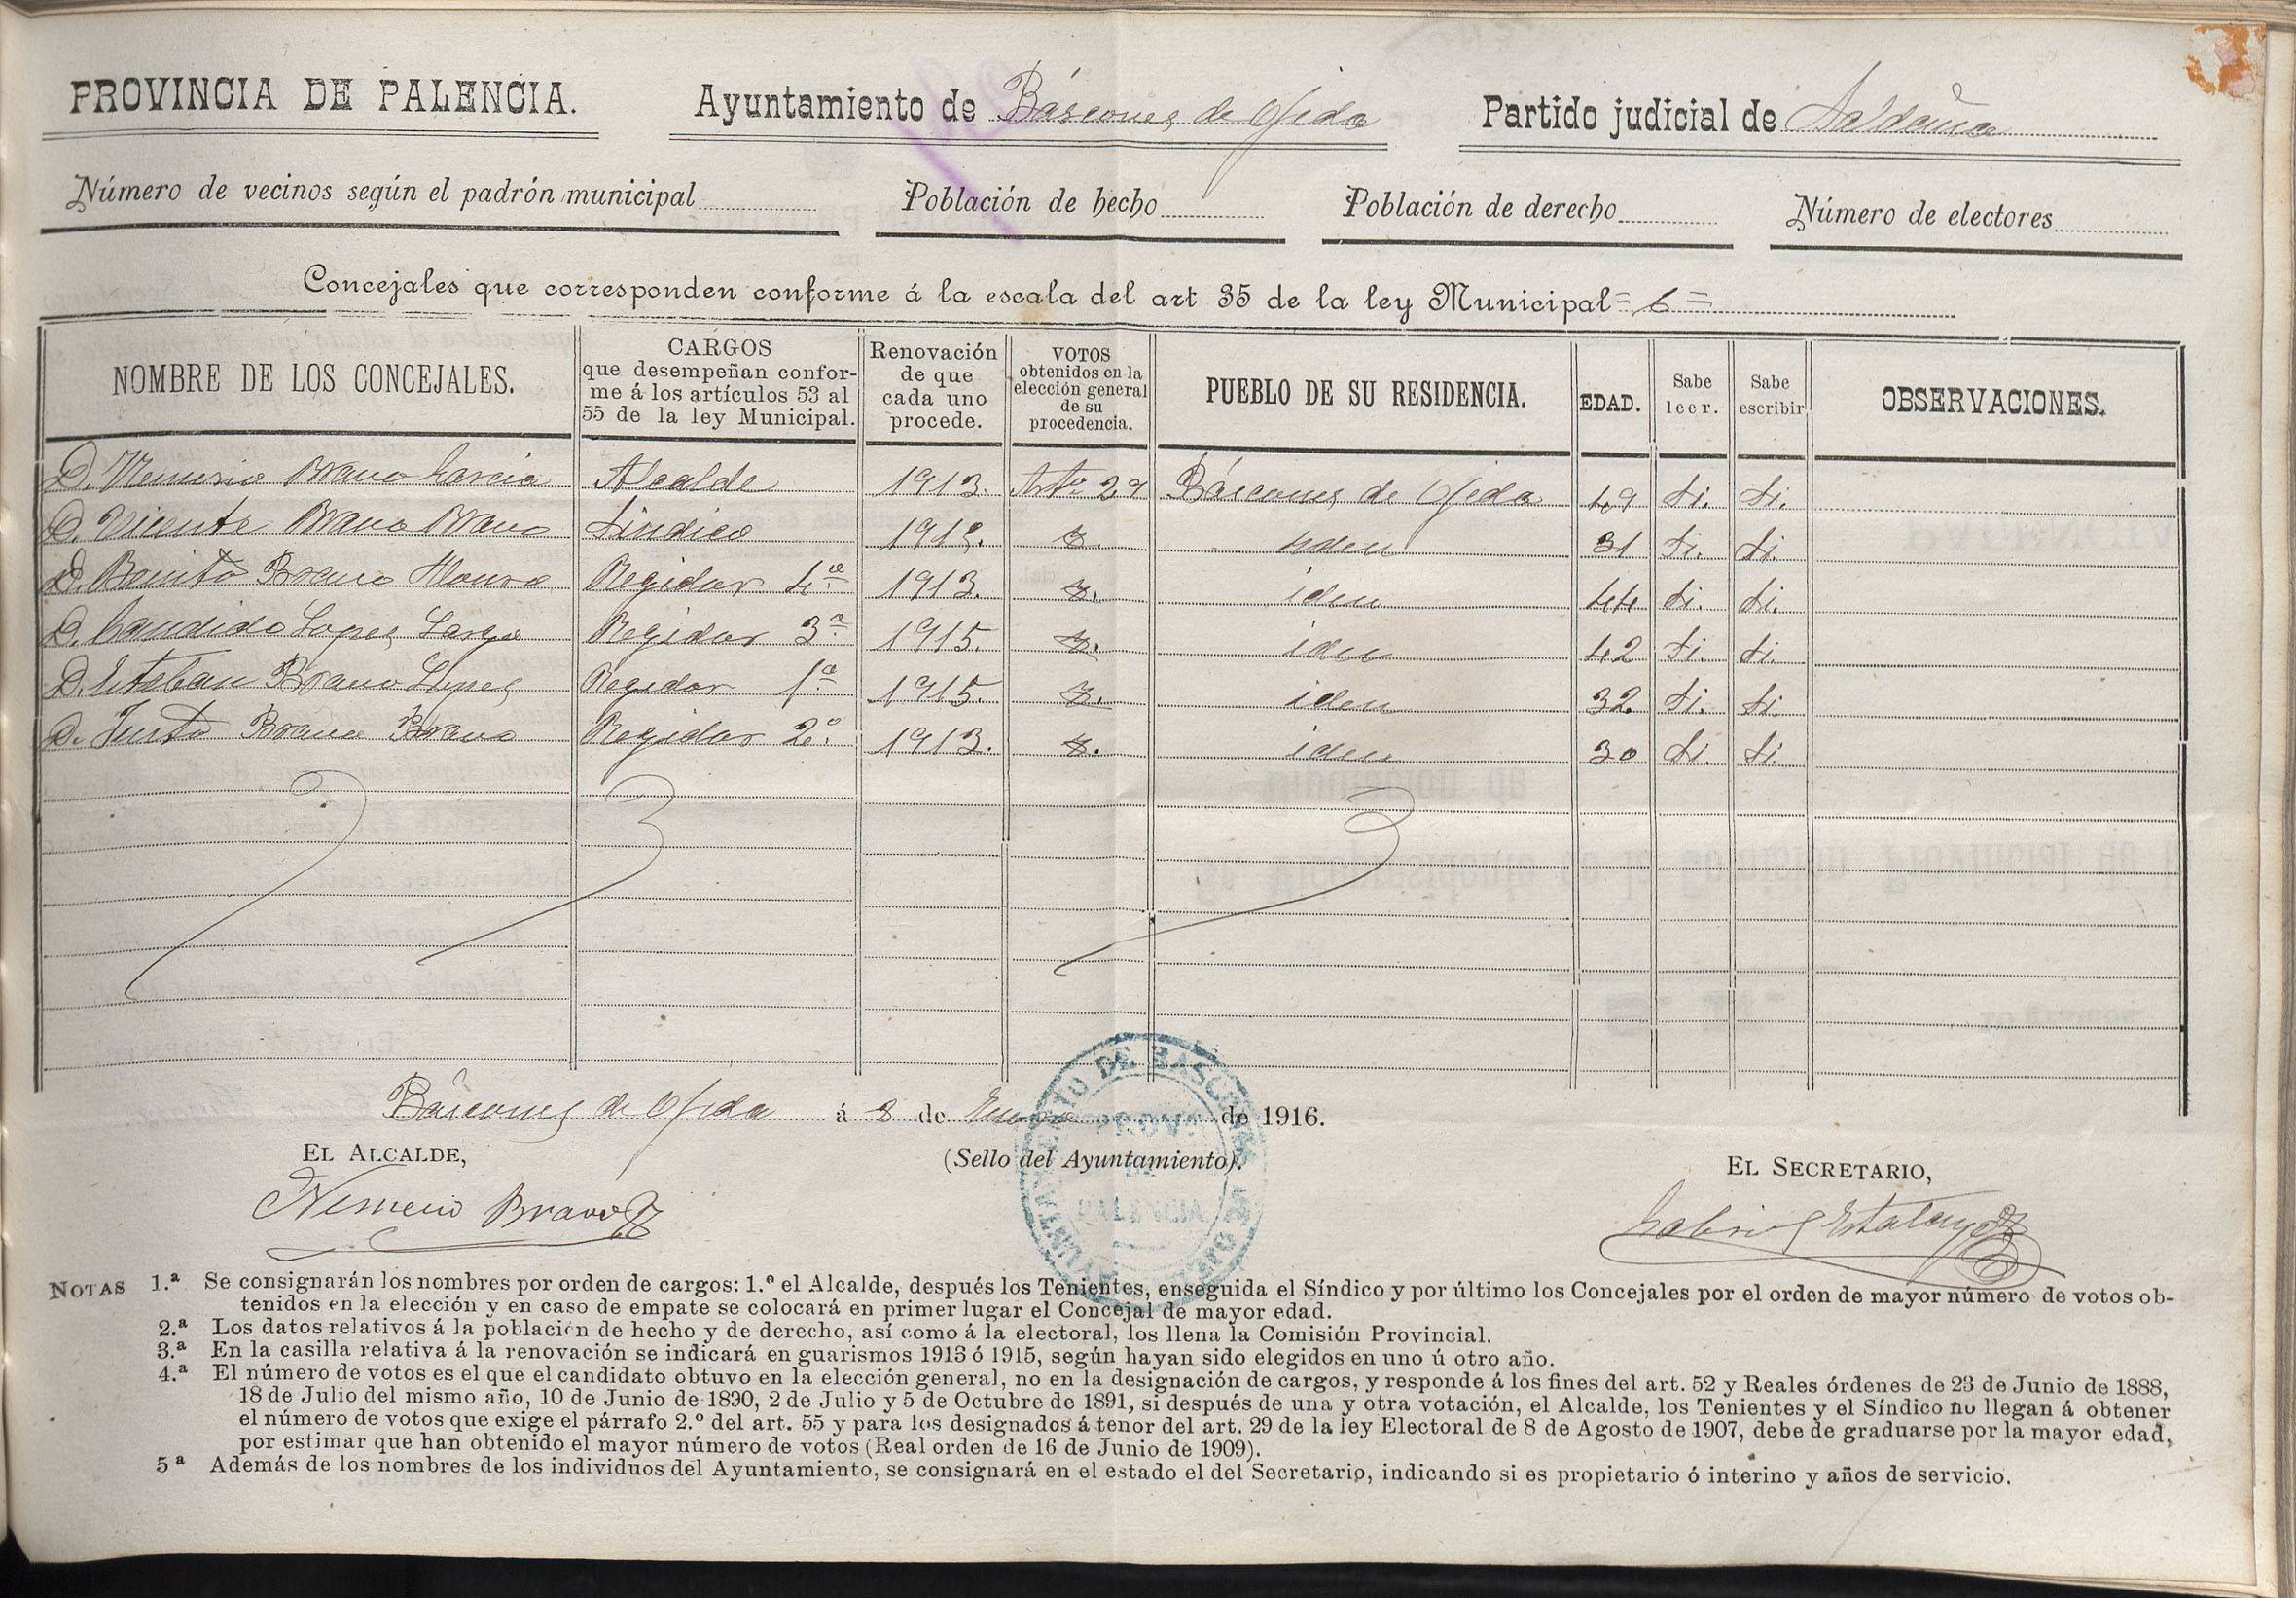 PROVINCIA DE PALENCIA. Ayuntamiento de Báscones de Ojeda Partido judicial de Saldaña
Número de vecinos según el padrón municipal Población de hecho Población de derecho Número de electores
Concejales que corresponden conforme á la escala del art 35 de la ley Municipal = 6 =
NOMBRE DE LOS CONCEJALES. CARGOS que desempeñan confor- me á los artículos 53 al 55 de la ley Municipal. Renovación de que cada uno procede. VOTOS obtenidos en la elección general de su procedencia. PUEBLO DE SU RESIDENCIA. EDAD. Sabe leer. Sabe escribir OBSERVACIONES.
D. Nemesio Bravo Garcia Alcalde 1913. Arto 29 Báscones de Ojeda 49 Si. Si.
D. Vicente Bravo Bravo Sindico 1913. iden 31 Si. Si.
D. Benito Bravo Regidor 4º 1913. iden 44 Si. Si.
D. Candido Lopez Largo Regidor 3º 1915. iden 42 Si. Si.
D. Esteban Bravo Lopez Regidor 1º 1915. iden 32. Si. Si.
D. Justo Bravo Bravo Regidor 2º 1913. iden 30 Si. Si.
Báscones de Ojeda á 2 de Enero de 1916.
EL ALCALDE, (Sello del Ayuntamiento). EL SECRETARIO,
Nemesio Bravo Gabriel Estalayo
AYUNTAMIENTO DE BASCONES DE OJEDA
PROVA
DE
PALENCIA
NOTAS 1.ª Se consignarán los nombres por orden de cargos: 1.º el Alcalde, después los Tenientes, enseguida el Síndico y por último los Concejales por el orden de mayor número de votos ob-
tenidos en la elección y en caso de empate se colocará en primer lugar el Concejal de mayor edad.
2.ª Los datos relativos á la población de hecho y de derecho, así como á la electoral, los llena la Comisión Provincial.
3.ª En la casilla relativa á la renovación se indicará en guarismos 1913 ó 1915, según hayan sido elegidos en uno ú otro año.
4.ª El número de votos es el que el candidato obtuvo en la elección general, no en la designación de cargos, y responde á los fines del art. 52 y Reales órdenes de 23 de Junio de 1888,
18 de Julio del mismo año, 10 de Junio de 1890, 2 de Julio y 5 de Octubre de 1891, si después de una y otra votación, el Alcalde, los Tenientes y el Síndico no llegan á obtener
el número de votos que exige el párrafo 2.º del art. 55 y para los designados á tenor del art. 29 de la ley Electoral de 8 de Agosto de 1907, debe de graduarse por la mayor edad,
por estimar que han obtenido el mayor número de votos (Real orden de 16 de Junio de 1909).
5ª Además de los nombres de los individuos del Ayuntamiento, se consignará en el estado el del Secretario, indicando si es propietario ó interino y años de servicio.